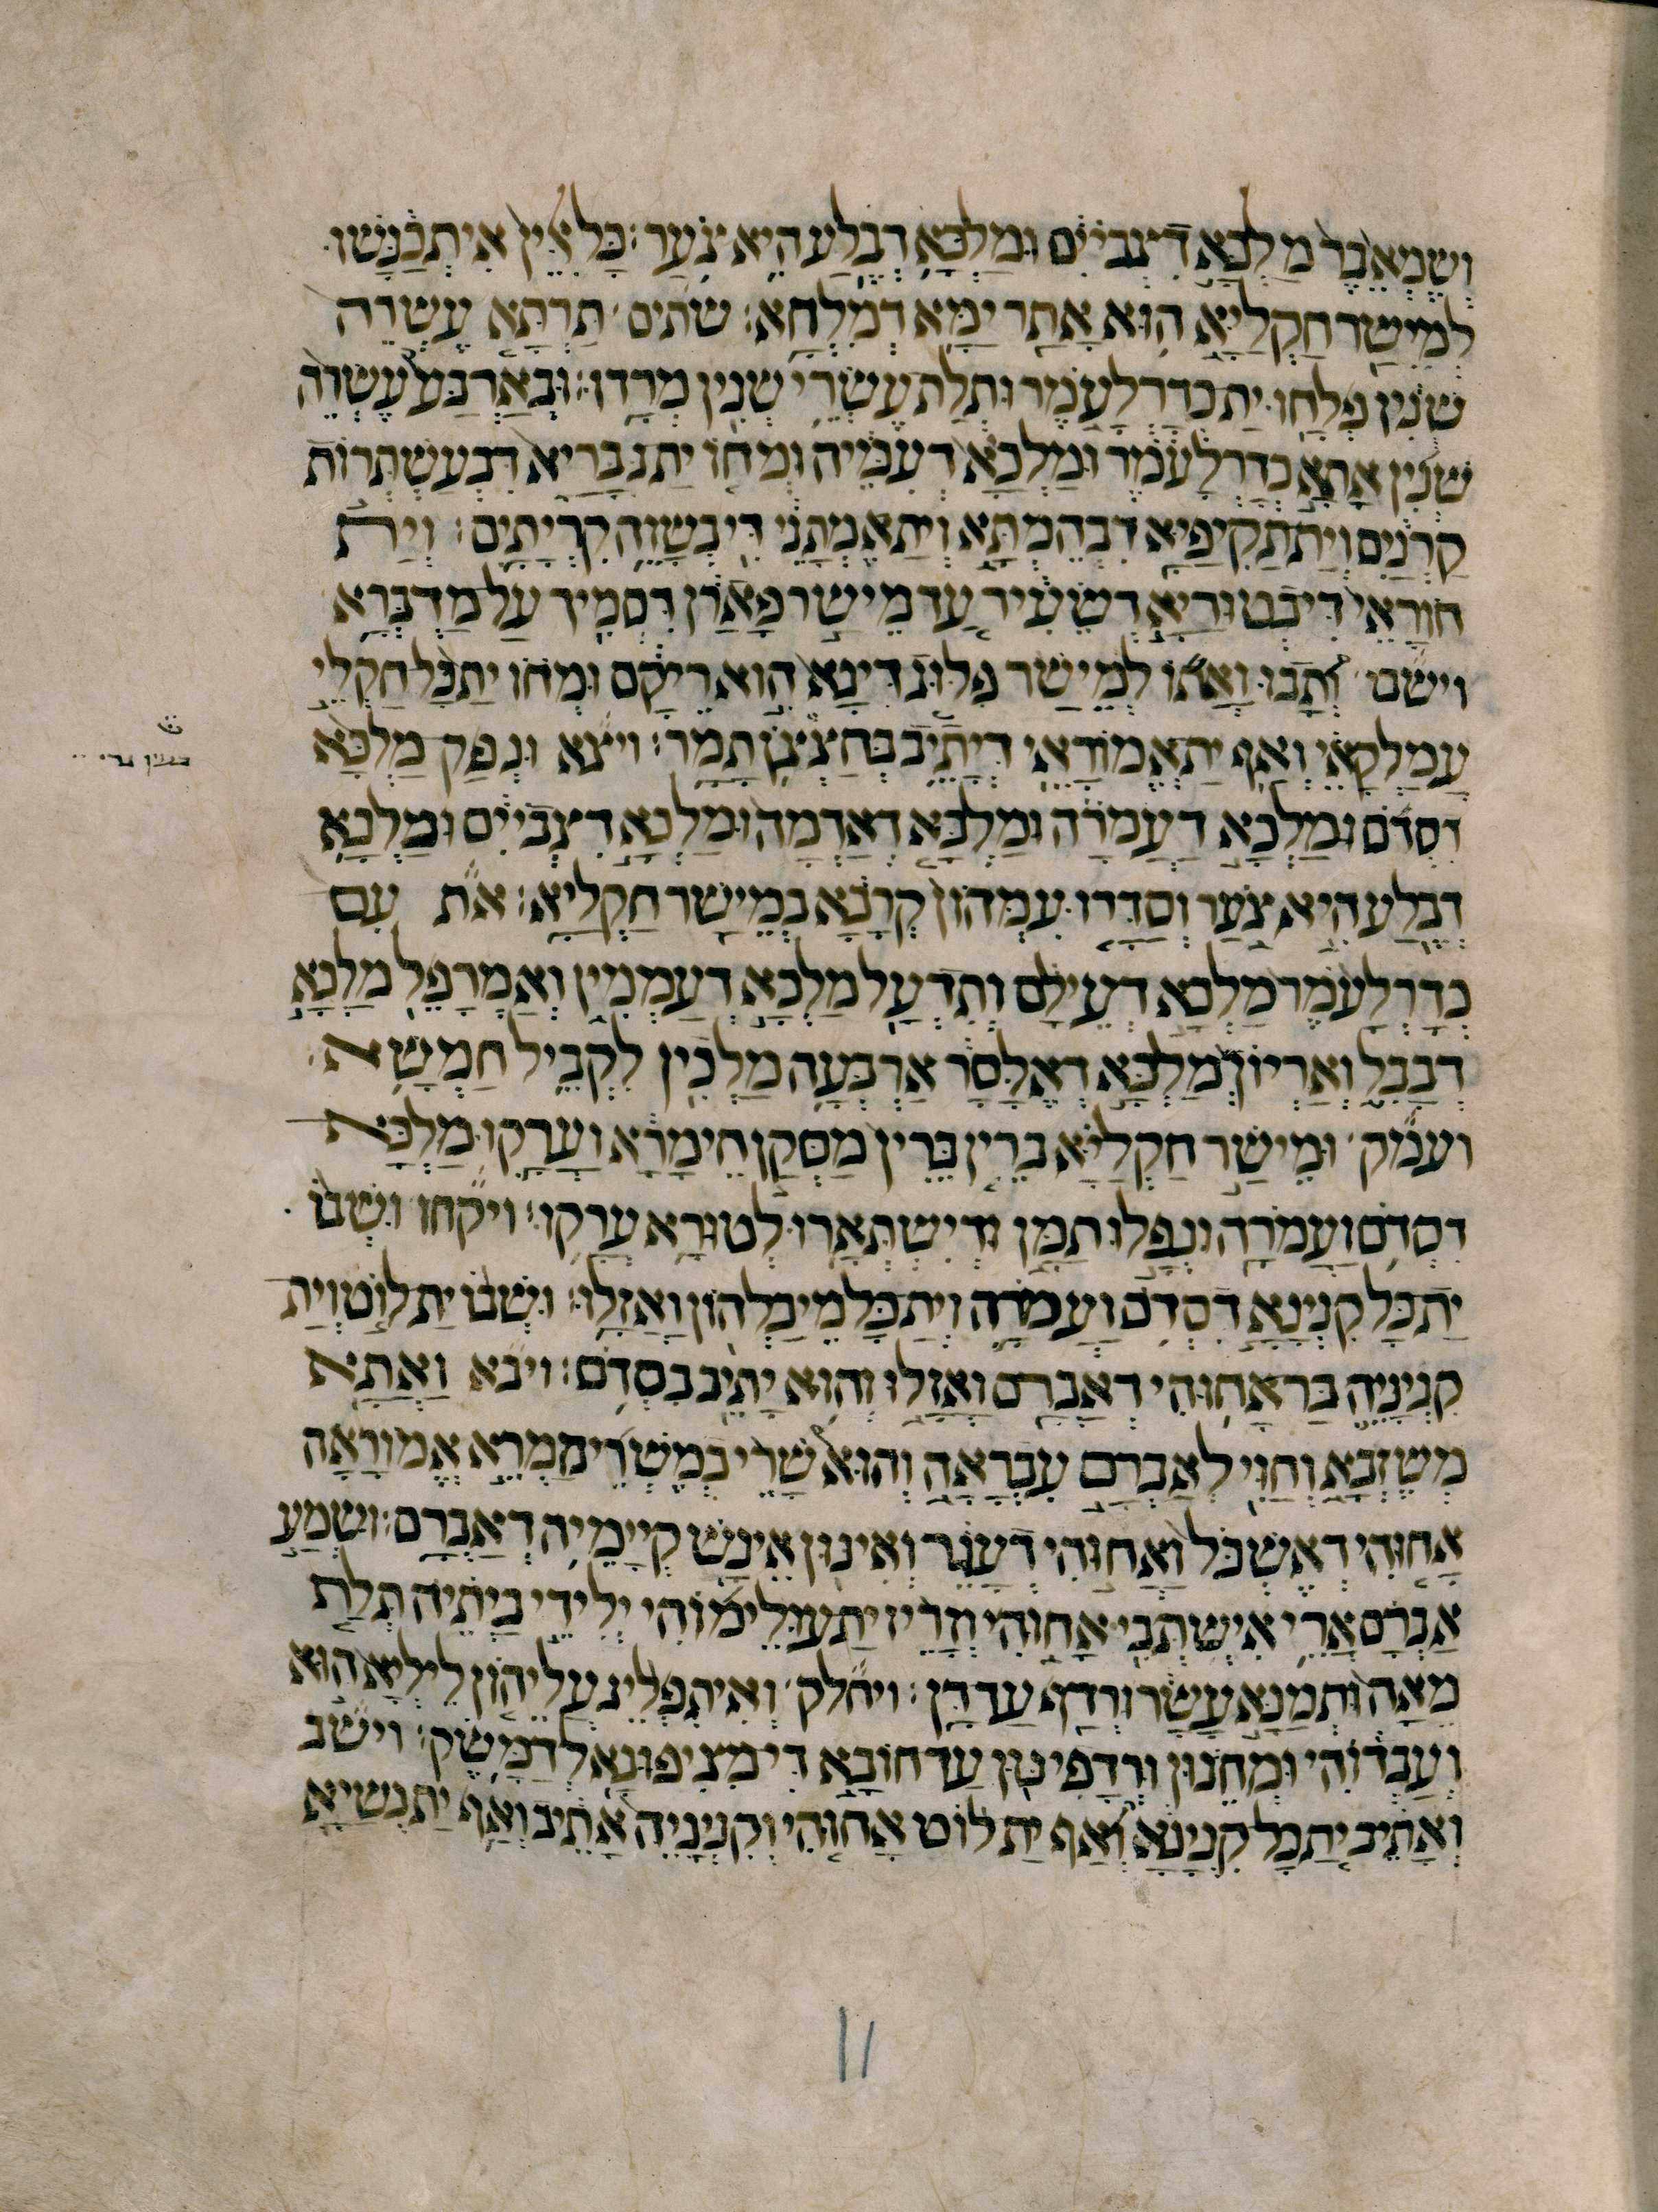 ושמאבר מלכא דצבויים ומלכא דבלע היא צער׃ כל אלין איתכנשו
למישר חקליא הוא אתר ימא דמלחא׃ שתים תרתא עשרה
שנין פלחו ית כדרלעמר ותלת עשרי שנין מרדו׃ ובארבע עשרה
שנין אתא כדרלעמר ומלכא דעמיה ומחו ית גבריא דבעשתרות
קרנים וית תקיפיא דבהמתא וית אמתני דיבשוה קריתים׃ וית
חוראי דיבטוריא דשעיר עד מישר פארן דסמיך על מדברא
וישבו ותבו ואתו למישר פלוג דינא הוא ריקם ומחו ית כל חקלי
עמלקאי ואף ית אמוראי דיתיב בחצצון תמר׃ ויצא ונפק מלכא
דסדם ומלכא דעמרה ומלכא דאדמה ומלכא דצבויים ומלכא
דבלע היא צער וסדרו עמהון קרבא במישר חקליא׃ את עם
כדרלעמר מלכא דעילם ותדעל מלכא דעממין ואמרפל מלכא
דבבל ואריוך מלכא דאלסר ארבעה מלכין לקביל חמשא
ועמק ומישר חקליא בירין בירין מסקן חימרא וערקו מלכא
דסדם ועמרה ונפלו תמן ודישתארו לטורא ערקו׃ ויקחו ושבו
ית כל קנינא דסדם ועמרה וית כל מיכלהון ואזלו׃ ושבו ית לוט וית
קניניה בר אחוהי דאברם ואזלו והוא יתיב בסדם׃ ויבא ואתא
משזבא וחוי לאברם עבראה והוא שרי במשרי ממרא אמוראה
אחוהי דאשכל ואחוהי דענר ואינון אינש קיימיה דאברם׃ ושמע
אברם ארי אישתבי אחוהי וזריז ית עולימוהי ילידי ביתיה תלת
מאה ותמנא עשר ורדף עד דן׃ ויחלק ואיתפליג עליהון ליליא הוא
ועבדוהי ומחנון ורדפינון עד חובא די מציפונא לדמשק׃ וישב
ואתיב ית כל קנינא ואף ית לוט אחוהי וקניניה אתיב ואף ית נשיא
11